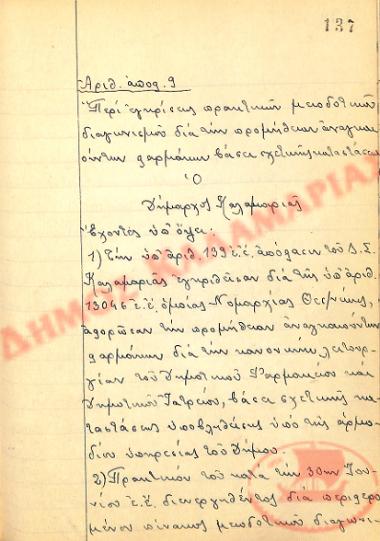 137
Αριθ. αποφ. 9
Περί εγκρίσεως πρακτικών μειοδοτικού
διαγωνισμού διά την προμήθειαν αναγκαι
ούντων φαρμάκων βάσει σχετικής καταστάσεως
Ο
Δήμαρχος Καλαμαριάς
Έχοντες υπ' όψει:
1) Την υπ' αριθ. 139 ε.έ. απόφασιν του Δ.Σ.
Καλαμαριάς εγκριθείσαν διά της υπ' αριθ.
13046 ε.έ. ομοίας Νομαρχίας Θεσ/νίκης,
αφορώσαν την προμήθειαν αναγκαιούντων
φαρμάκων διά την κανονικήν λειτουρ-
γίαν του Δημοτικού Φαρμακείου και
Δημοτικού Ιατρείου, βάσει σχετικής κα-
ταστάσεως υποβληθείσης υπό της αρμο-
δίου υπηρεσίας του Δήμου.
2) Πρακτικόν του κατά την 30ην Ιου-
νίου ε.έ. διενεργηθέντος διά περιφρο
μένου πίνακος μειοδοτικού διαγωνι-
ΔΗΜΟΣ ΚΑΛΑΜΑΡΙΑΣ